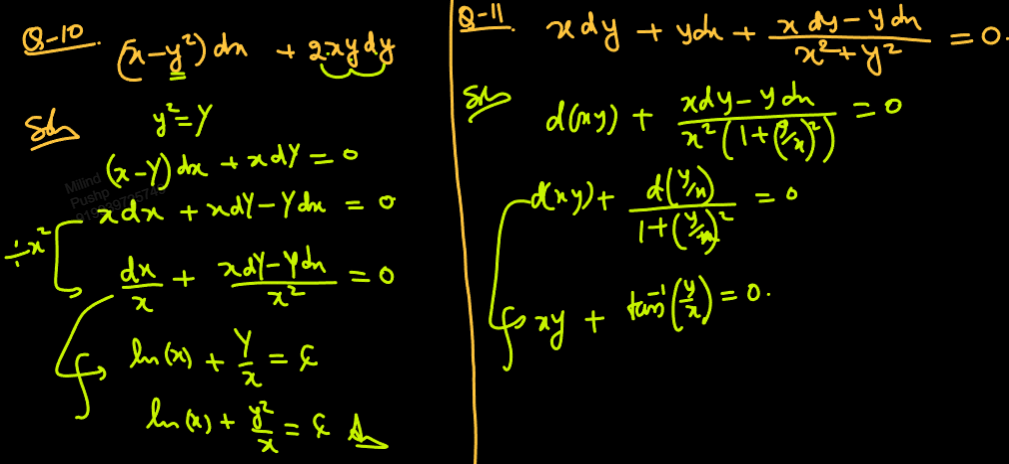 Q-10. (x-y²)dx + 2xydy
Soln y²=Y
(x-Y)dx + xdY = 0
xdx + xdY-Ydx = 0
÷x²
dx/x + (xdY-Ydx)/x² = 0
∫ ln(x) + Y/x = c
ln(x) + y²/x = c Ans
Q-11. xdy + ydx + (xdy-ydx)/(x²+y²) = 0.
Soln d(xy) + (xdy-ydx)/(x²(1+(y/x)²)) = 0
d(xy) + d(y/x)/(1+(y/x)²) = 0
∫ xy + tan⁻¹(y/x) = 0.
Milind
Pushp